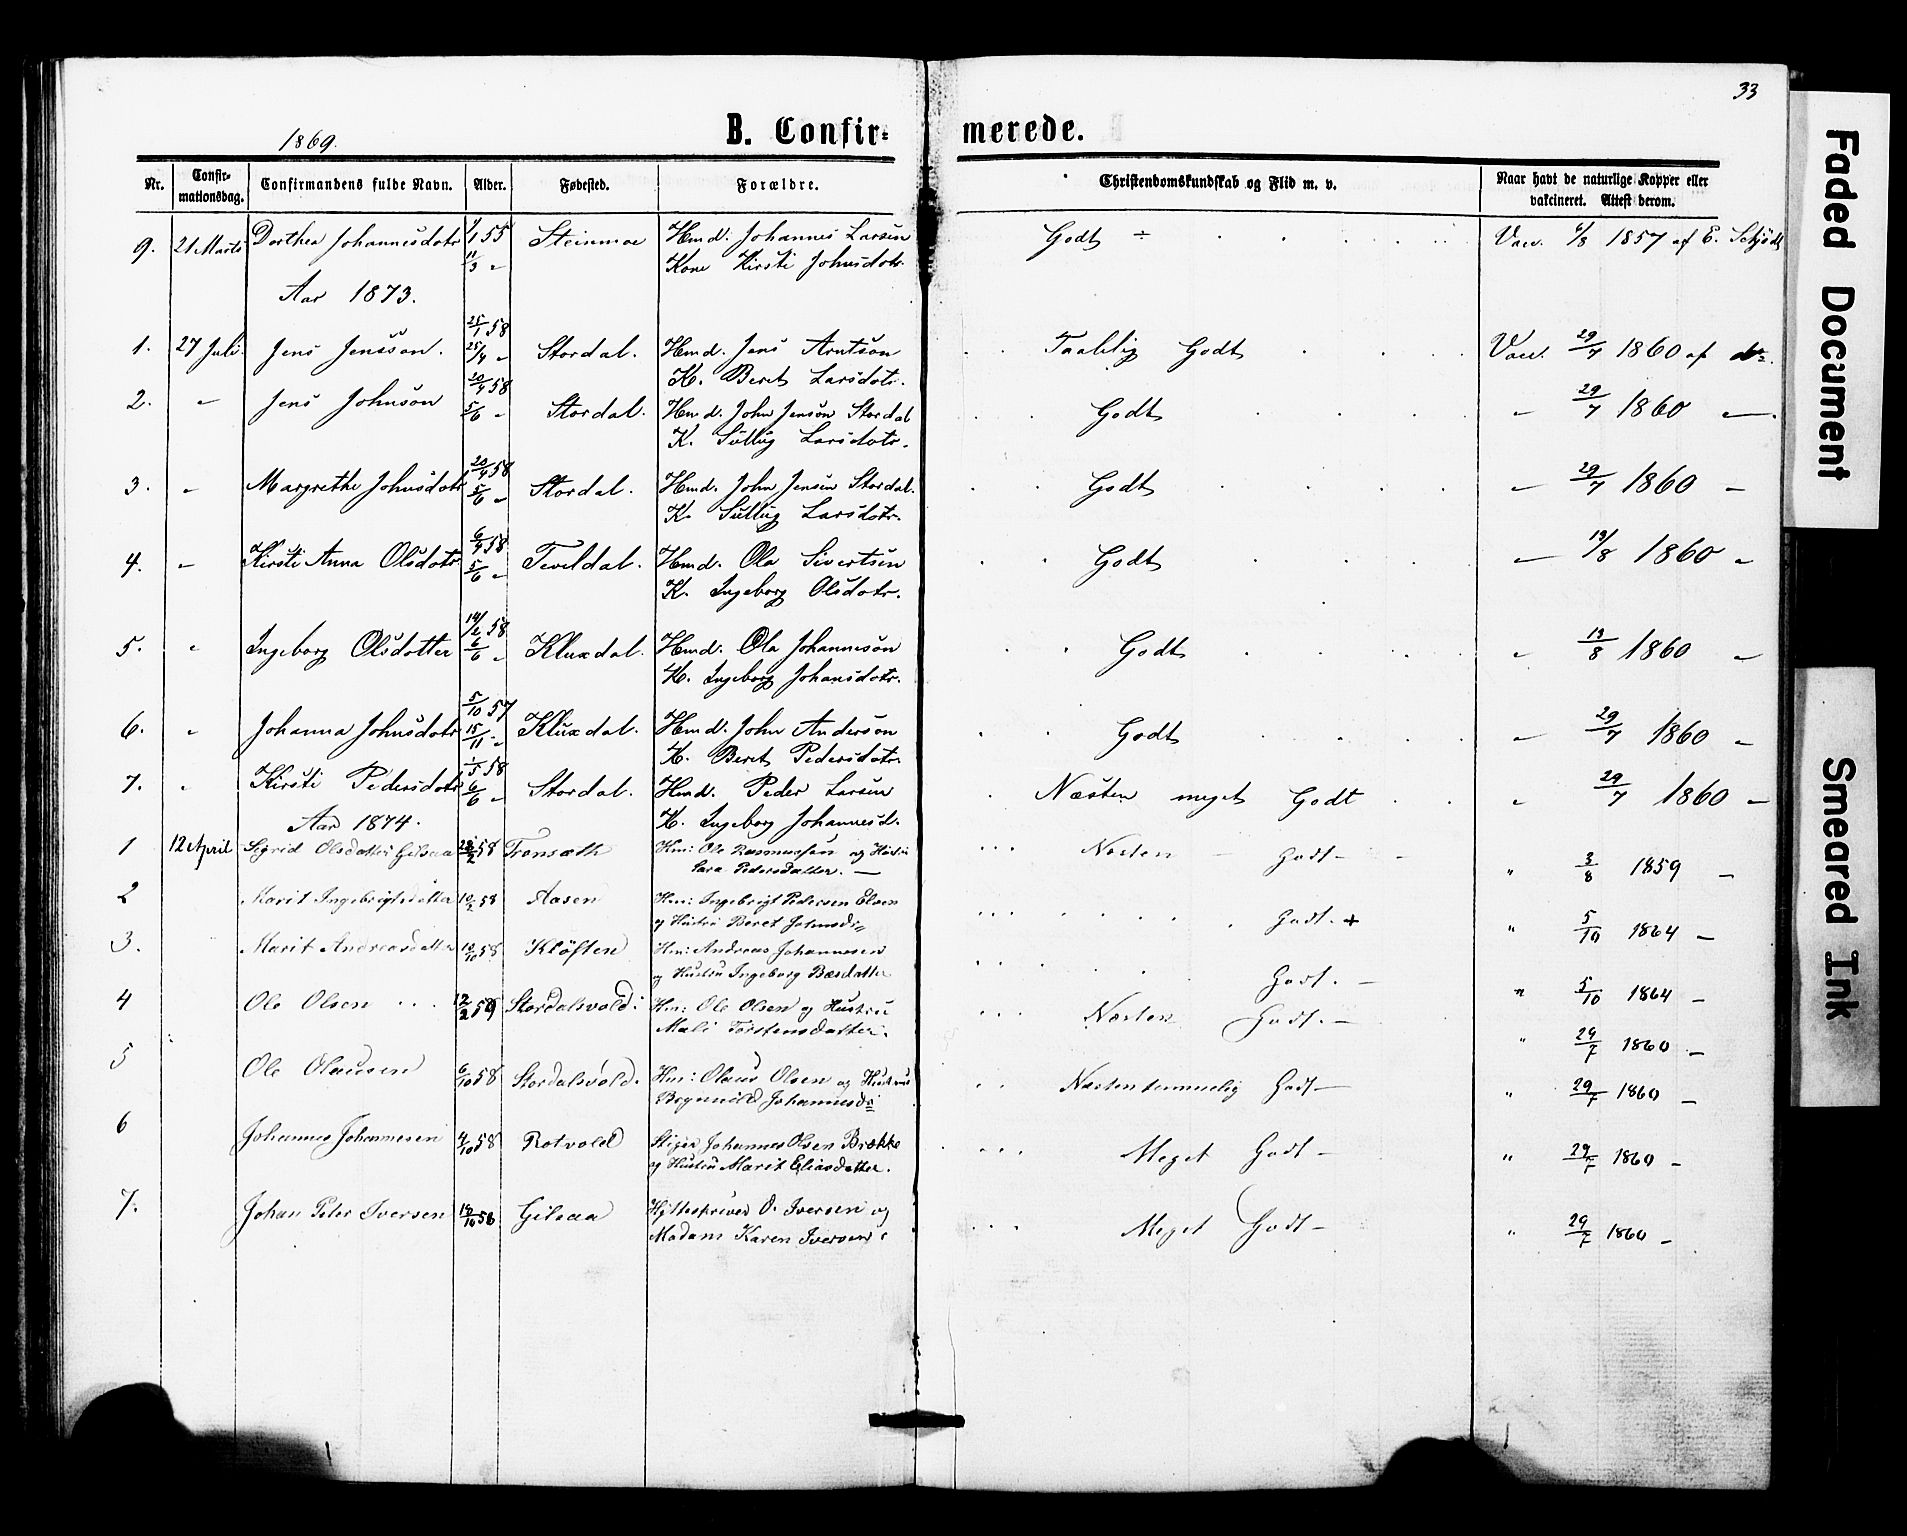 33
1869.
B. Confir- merede.
Nr. Confir-mationsdag. Confirmandens fulde Navn. Alder. Fødested. Forældre. Christendomskundskab og Flid m. v. Naar havt de naturlige Kopper eller vakcineret. Attest derom.
9. 21 Marts Dorthea Johannesdotr 55 Steinmoe Hmd. Johannes Larsen Godt ÷ Vacc. 6/8 1857 af E. Schjødt
11/3 „ Kone Kirsti Johnsdotr.
Aar 1873.
1. 27 Juli. Jens Jensson. 25/1 58 25/4 „ Stordal. Hmd. Jens Arntson Taalelig Godt Vacc. 29/7 1860 af do.
K. Beret Larsdotr.
2. „ Jens Johnson 20/4 58 5/6 „ Stordal. Hmd. John Jenson Stordal Godt „ 29/7 1860 „
K. Sullug Larsdotr.
3. „ Margrethe Johnsdotr 20/4 58 5/6 „ Stordal. Hmd. John Jensen Stordal. Godt „ 29/7 1860 „
K. Sullug Larsdotr.
4. „ Kirsti Anna Olsdotr 6/4 58 5/6 „ Teveldal. Hmd. Ola Sivertsen Godt „ 13/8 1860 „
K. Ingeborg Olsdotr.
5. „ Ingeborg Olsdotter 14/2 58 6/6 „ Kluxdal. Hmd. Ola Johanneson Godt „ 13/8 1860 „
K. Ingeborg Johansdotr.
6. „ Johanna Johnsdotr 5/10 57 15/11 „ Kluxdal. Hmd. John Anderson Godt „ 29/7 1860 „
K. Beret Pedersdotr.
7. „ Kirsti Pedersdotr 1/5 58 6/6 „ Stordal. Hmd. Peder Larsen Næsten meget Godt „ 29/7 1860 „
K. Ingeborg Johannesd.
Aar 1874.
1 12 April Sigrid Olsdatter Gilsaa 28/2 58 Tronsæth Hm: Ole Rasmussen og Hustru Næsten Godt „ 3/8 1859 „
Sara Pedersdatter.
2 Marit Ingebrigtsdatter 10/2 58 Aasen Hm: Ingebrigt Pedersen Elven Godt. + „ 5/10 1864 „
og Hustru Beret Johnsdr
3. Marit Andreasdatter 10/10 58 Kløften Hm: Andreas Johannesen Godt. „ 5/10 1864 „
og Hustru Ingeborg Bæsdatter
4 Ole Olsen 12/2 59 Stordalsvold: Hm: Ole Olsen og Hustru Næsten Godt. „ 29/7 1860 „
Mali Torstensdatter.
5 Ole Olausen 6/10 58 Stordalsvold. Hm: Olaus Olsen og Hustru Næsten temmelig Godt „ 29/7 1860 „
Johannesdr
6 Johannes Johannesen 4/10 58 Rotvold Stiger Johannes Olsen Brække Meget Godt „ 29/7 1860 „
og Hustru Marit Eliasdatter.
7. Johan Peter Iversen 58 Gilsaa Hytteskriver O. Iversen og Meget Godt „ 29/7 1860 „
Madam Karen Iversen
Faded Document
Smeared Ink